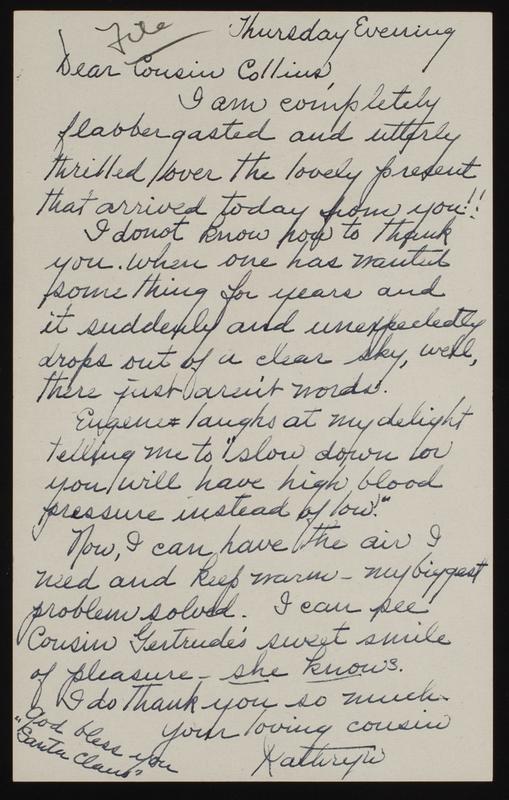 File
Thursday Evening
Dear Cousin Collins,
I am completely
flabbergasted and utterly
thrilled over the lovely present
that arrived today from you!!
I donot know how to thank
you. When one has wanted
something for years and
it suddenly and unexpectedly
drops out of a clear sky, well,
there just aren't words.
Eugene laughs at my delight
telling me to "slow down or
you will have high blood
pressure instead of low."
Now, I can have the air I
need and keep warm - my biggest
problem solved. I can see
Cousin Gertrude's sweet smile
of pleasure - she knows.
I do thank you so much.
your loving cousin
Kathryn
God bless you
"Santa Claus"